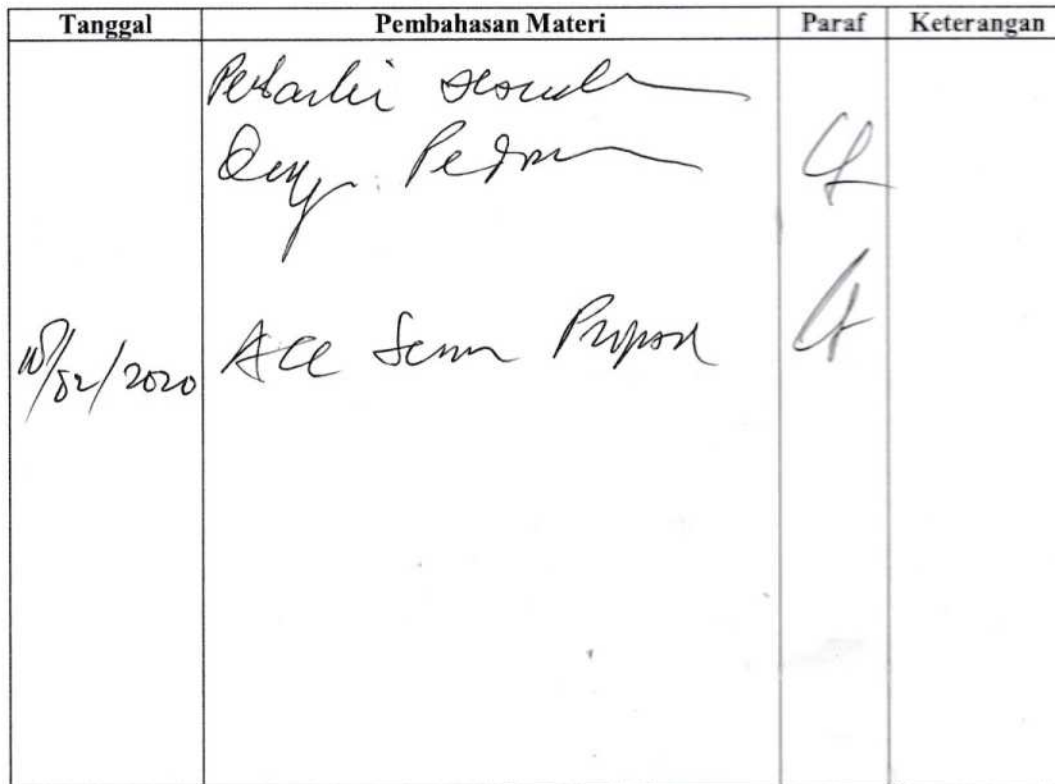 Tanggal Pembahasan Materi Paraf Keterangan
Perbaiki sesuai
Deng Pedoman
/02/2020 Acc Semi Propos